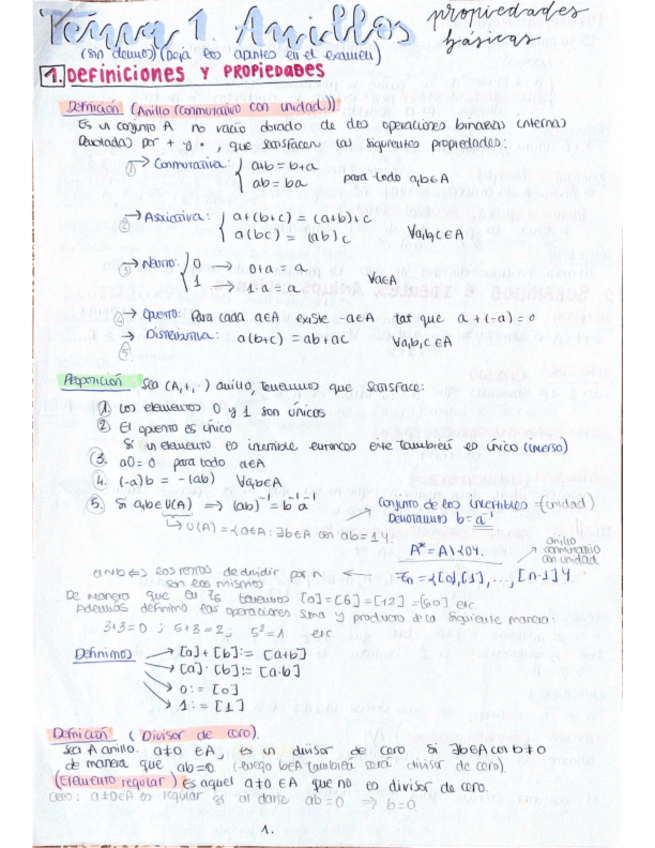 Tema 1. Anillos propiedades básicas
(sin demos) (Deja los apuntes en el examen)
1. DEFINICIONES Y PROPIEDADES
Definición (Anillo (conmutativo con unidad))
Es un conjunto A no vacío dotado de dos operaciones binarias internas
Denotadas por + y ·, que satisfacen las siguientes propiedades:
① → Conmutativa: { a+b = b+a
ab = ba para todo a,b∈A
② → Asociativa: { a+(b+c) = (a+b)+c
a(bc) = (ab)c ∀a,b,c∈A
③ → Neutro: { 0 → 0+a = a
1 → 1·a = a ∀a∈A
④ → Opuesto: Para cada a∈A existe -a∈A tal que a+(-a)=0
⑤ → Distributiva: a(b+c) = ab+ac ∀a,b,c∈A
Proposición Sea (A,+,·) anillo, tenemos que satisface:
① Los elementos 0 y 1 son únicos
② El opuesto es único
Si un elemento es invertible entonces este también es único (inverso)
③. a0=0 para todo a∈A
④. (-a)b = -(ab) ∀a,b∈A
⑤. Si a,b∈U(A) ⟹ (ab)⁻¹ = b⁻¹a⁻¹
Conjunto de los invertibles (unidad)
Denotamos b=a⁻¹
↳ U(A) = {a∈A: ∃b∈A con ab=1}.
A* = A\{0}.
anillo conmutativo con unidad
a~b ⟺ los restos de dividir por n son los mismos ← ℤn = {[0],[1],...,[n-1]}
De manera que en ℤ6 tenemos [0]=[6]=[12]=[60] etc.
Además definimo las operaciones suma y producto de la siguiente manera:
3+3=0 ; 5+3=2 ; 5²=1 etc
Definimos → [a]+[b]:= [a+b]
→ [a]·[b]:= [a·b]
→ 0:= [0]
→ 1:= [1]
Definición (Divisor de cero).
Sea A anillo. a≠0 ∈A, es un divisor de cero si ∃b∈A con b≠0
de manera que ab=0. (luego b∈A también será divisor de cero).
(Elemento regular) Es aquel a≠0 ∈A que no es divisor de cero.
a≠0∈A es regular si al darse ab=0 ⟹ b=0.
1.